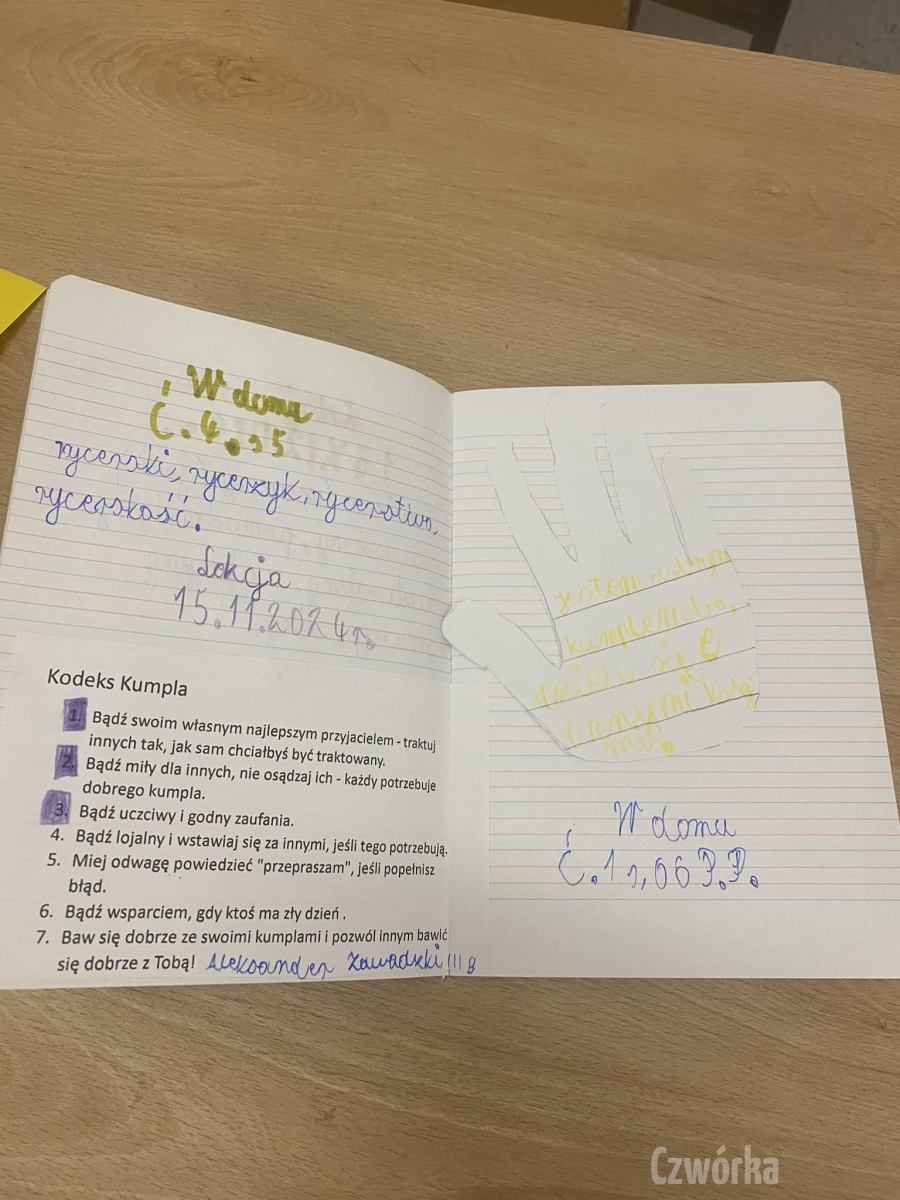 W domu
Ć. 4. s 5
rycerski, rycerzyk, rycerstwo,
rycerskość.
Lekcja
15.11.2024r.
Kodeks Kumpla
1. Bądź swoim własnym najlepszym przyjacielem - traktuj
innych tak, jak sam chciałbyś być traktowany.
2. Bądź miły dla innych, nie osądzaj ich - każdy potrzebuje
dobrego kumpla.
3. Bądź uczciwy i godny zaufania.
4. Bądź lojalny i wstawiaj się za innymi, jeśli tego potrzebują.
5. Miej odwagę powiedzieć "przepraszam", jeśli popełnisz
błąd.
6. Bądź wsparciem, gdy ktoś ma zły dzień .
7. Baw się dobrze ze swoimi kumplami i pozwól innym bawić
się dobrze z Tobą! Aleksander Zawadzki !!!
jestem dobrym
kumplem bo,
dziele się z
innymi
W domu
Ć. 1 s, 66 P.P.
Czwórka